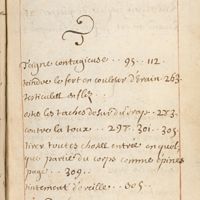 T
Teigne contagieuse . . 95 . . 112 .
teindre le fort en couleur d'erain . 263 .
testicules enflez
oster les taches de sur du drap . 273 .
contre la toux . . 297 . 301 . . 305
tirer toutes choses entree en quel
que partie du corps comme épines
page . . 309 . .
tintement d'oreille . . 305 .